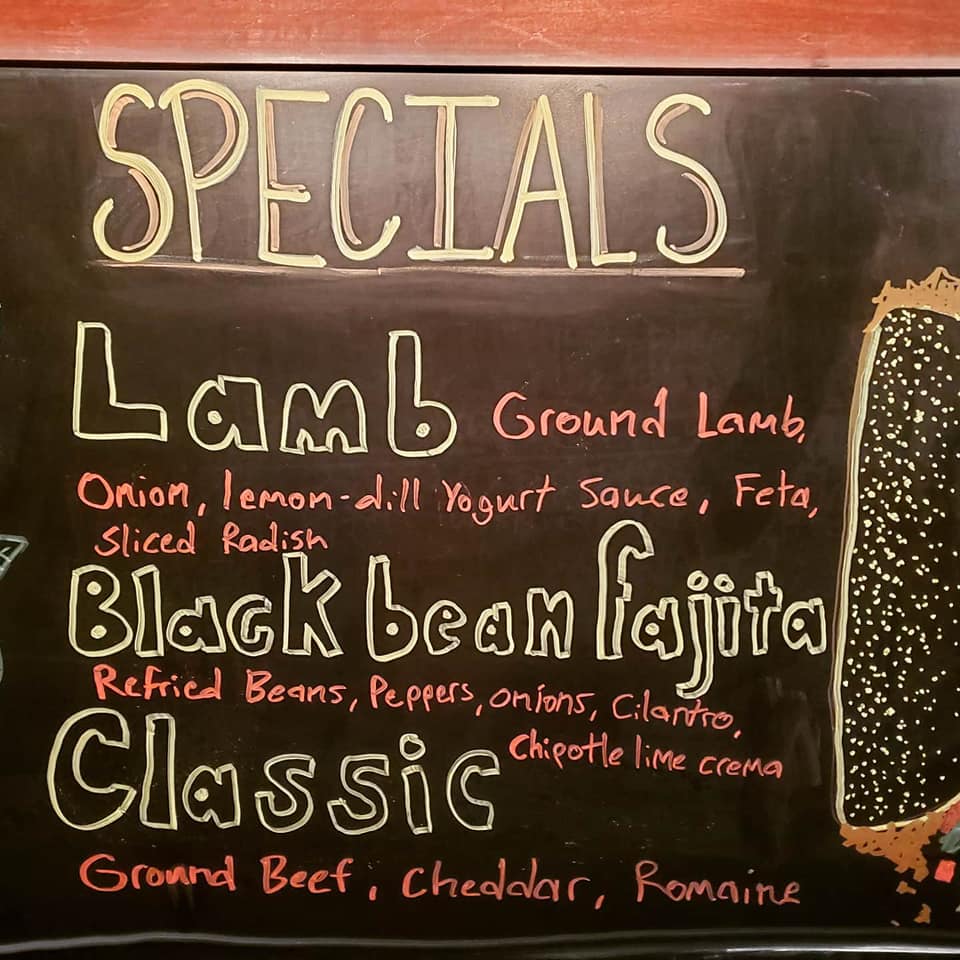 SPECIALS
Lamb Ground Lamb,
Onion, lemon-dill Yogurt Sauce, Feta,
Sliced Radish
Black bean fajita
Refried Beans, Peppers, onions, Cilantro,
Chipotle lime crema
Classic
Ground Beef, Cheddar, Romaine